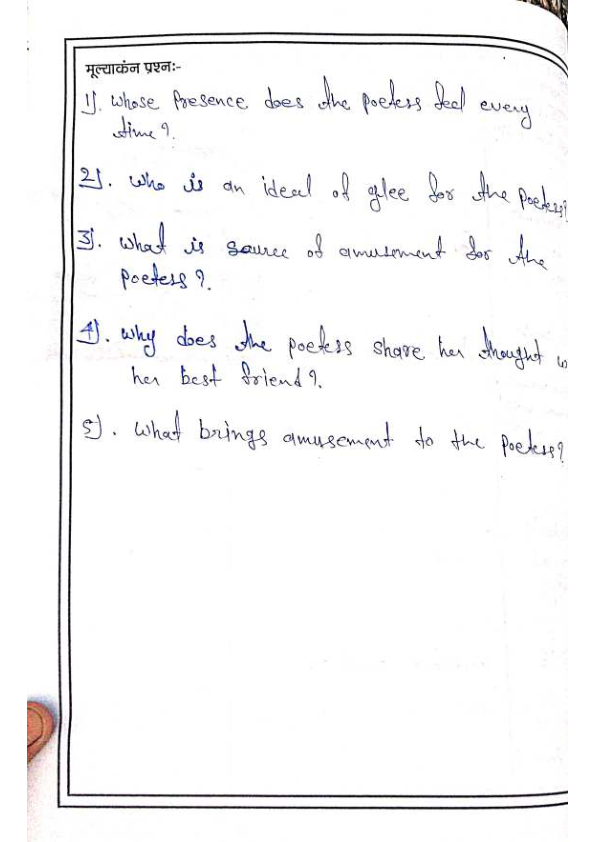 मूल्याकंन प्रश्नः-
1). Whose Presence does the poetess feel every
time?.
2). who is an ideal of glee for the poetess?
3). What is source of amusement for the
poetess?.
4). Why does the poetess share her thought
her best friend?.
5). What brings amusement to the poetess?